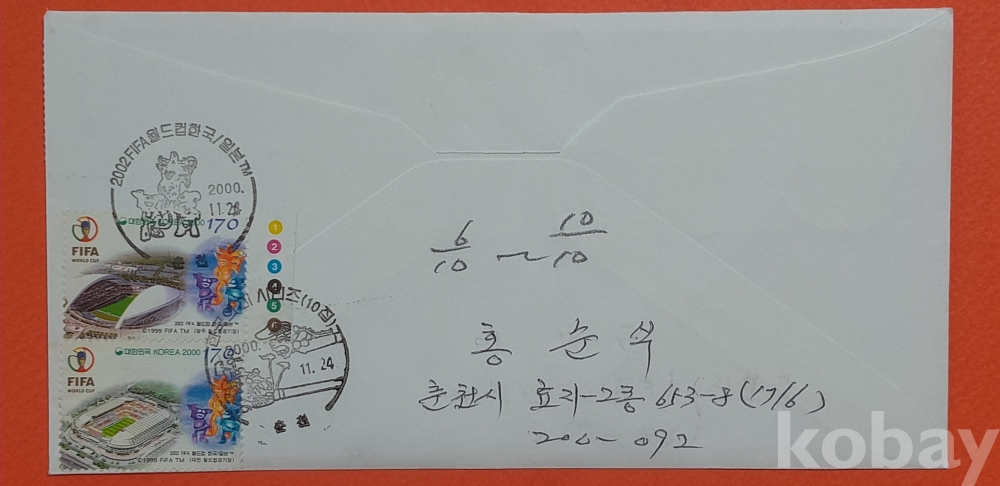 2002 FIFA 월드컵한국/일본™
2000.
11.24
대한민국 KOREA 2000 170
FIFA
WORLD CUP
1
2
3
4
5
6
2002 FIFA 월드컵 한국/일본™
©1999 FIFA TM
시리즈(10집)
2000.
11.24
춘천
대한민국 KOREA 2000 170
FIFA
WORLD CUP
2002 FIFA 월드컵 한국/일본™
©1999 FIFA TM
6/10 ~ 10/10
홍 순 식
춘천시 효자-2동 653-8 (17/6)
200-092
kobay